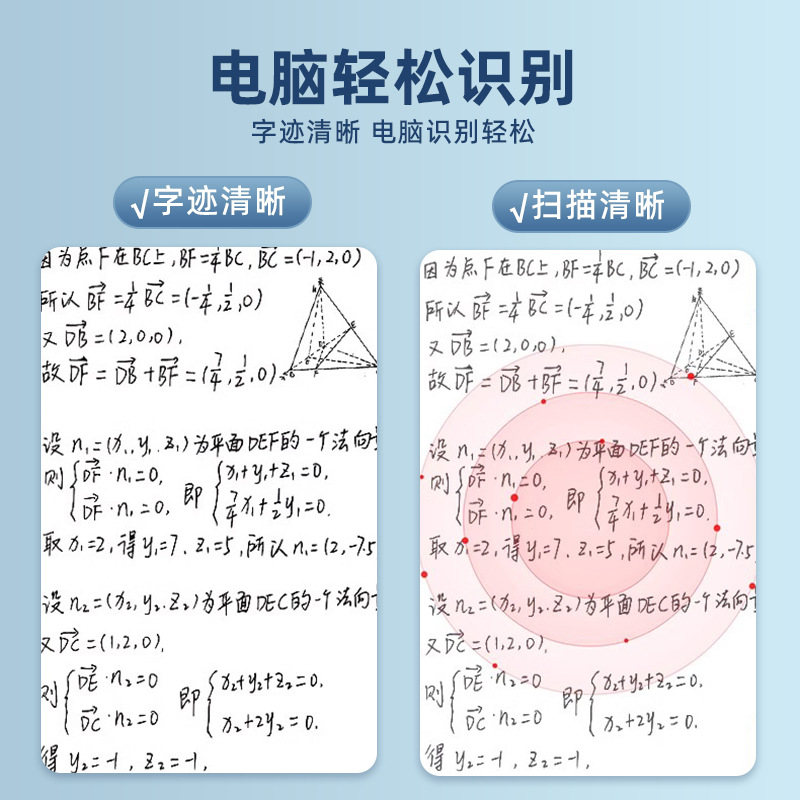 电脑轻松识别
字迹清晰 电脑识别轻松
√字迹清晰
因为点F在BC上,BF=¼BC,BC→=(-1,2,0)
所认BF→=¼BC→=(-¼,½,0)
又DB→=(2,0,0),
故DF→=DB→+BF→=(7/4,½,0).
设n₁=(x₁,y₁,z₁)为平面DEF的一个法向
则{DF→·n₁=0, 即{x₁+y₁+z₁=0,
DF→·n₁=0, 7/4x₁+½y₁=0.
取x₁=2,得y₁=7.z₁=5,所认n₁=(2,-7.5
设n₂=(x₂,y₂.z₂)为平面DEC的一个法向
又DC→=(1,2,0),
则{DE→·n₂=0 即{x₂+y₂+z₂=0.
DC→·n₂=0 x₂+2y₂=0.
得y₂=-1,z₂=-1,
√扫描清晰
因为点F在BC上,BF=¼BC,BC→=(-1,2,0)
所认BF→=¼BC→=(-¼,½,0)
又DB→=(2,0,0),
故DF→=DB→+BF→=(7/4,½,0).
设n₁=(x₁,y₁,z₁)为平面DEF的一个法向
则{DF→·n₁=0, 即{x₁+y₁+z₁=0,
DF→·n₁=0, 7/4x₁+½y₁=0.
取x₁=2,得y₁=7.z₁=5,所认n₁=(2,-7.5
设n₂=(x₂,y₂.z₂)为平面DEC的一个法向
又DC→=(1,2,0),
则{DE→·n₂=0 即{x₂+y₂+z₂=0.
DC→·n₂=0 x₂+2y₂=0.
得y₂=-1,z₂=-1,